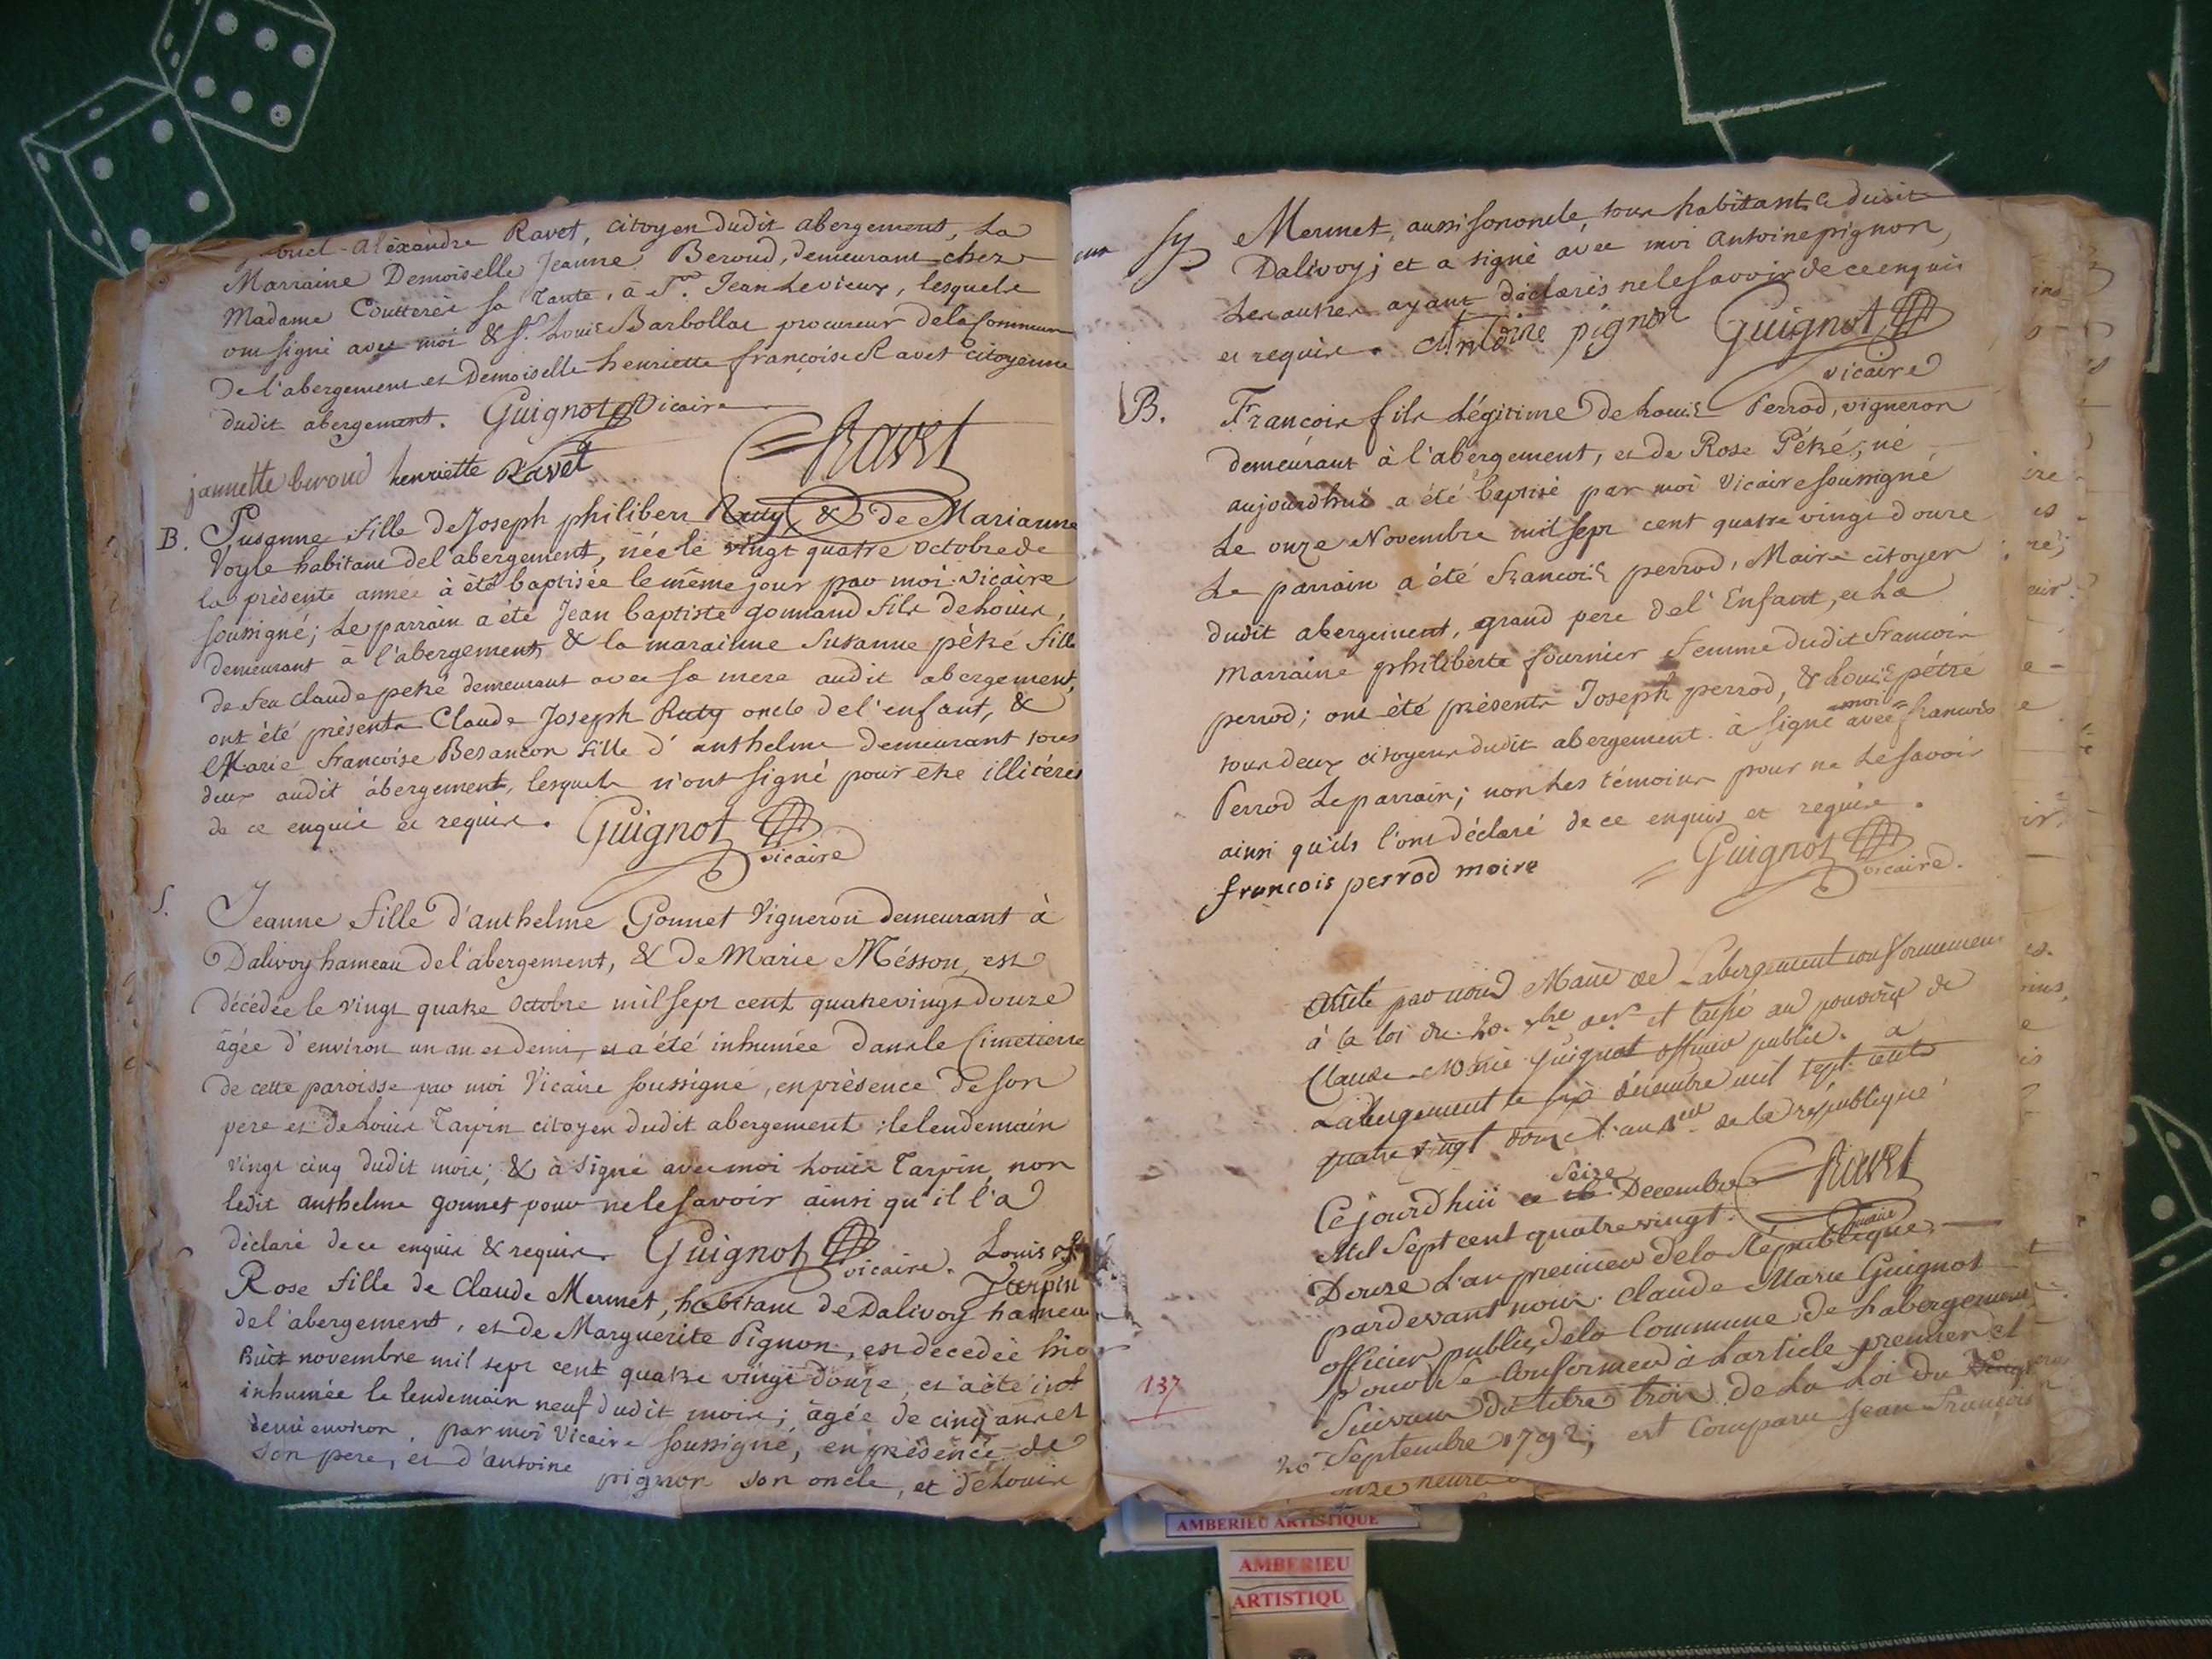 Alexandre Ravet, citoyen dudit abergement, La
Marraine Demoiselle Jeanne Beroud, demeurant chez
Madame Coutterés sa tante, à St. Jean Le vieux, lesquels
ont signé avec moi & Sr. Louis Barbollat procureur de la Commune
De l'abergement et Demoiselle henriette françoise Ravet citoyenne
dudit abergement. Guignot Vicaire
jannette beroud henriette Ravet Ravet
B. Susanne fille de Joseph philibert Ruty, & de Marianne
Voyle habitant de l'abergement, née le vingt quatre octobre de
la présente année à été baptisée le même jour par moi Vicaire
soussigné; Le parrain a été Jean baptiste gonnand fils de Louis,
demeurant à l'abergement, & la marainne Susanne péké fille
de feu Claude peké demeurant avec sa mere audit abergement,
ont été présents Claude Joseph Ruty oncle de l'enfant, &
Marie francoise Besançon fille d'anthelme demeurant tous
deux audit abergement, lesquels n'ont signé pour etre illitérés
de ce enquis et requis. Guignot
vicaire
S. Jeanne fille d'anthelme Gonnet Vigneron demeurant à
Dalivoy hameau de l'abergement, & de Marie Mésson, est
décédée le vingt quatre octobre mil sept cent quatre vingt douze
âgée d'environ un an et demi, et a été inhumée dans le Cimetierre
de cette paroisse par moi Vicaire soussigné, en présence de son
pere et de Louis Tarpin citoyen dudit abergement; le lendemain
vingt cinq dudit mois; & à signé avec moi Louis Tarpin, non
ledit anthelme gonnet pour ne le savoir ainsi qu'il l'a
déclaré de ce enquis & requis. Guignot vicaire. Louis
Tarpin
Rose fille de Claude Mermet, habitant de Dalivoy hameau
de l'abergement, et de Marguerite Pignon, est décédée hier
huit novembre mil sept cent quatre vingt douze, et a été
inhumée le lendemain neuf dudit mois; âgée de cinq ans et
demi environ, par moi Vicaire soussigné, en présence de
son pere, et d'antoine pignon son oncle, et de Louis
Mermet, aussi son oncle, tous habitants dudit
Dalivoy; et a signé avec moi antoine pignon,
Les autres ayant déclarés ne le savoir de ce enquis
et requis. Antoine pignon Guignot
vicaire
B. François fils Légitime de Louis Perrod, vigneron
demeurant à l'abergement, et de Rose Péké, né
aujourdhui a été baptisé par moi Vicaire soussigné
Le onze Novembre mil sept cent quatre vingt douze
Le parrain a été francois perrod, Maire citoyen
dudit abergement, grand pere de l'Enfant, et La
marraine philiberte fournier femme dudit francois
perrod; ont été présents Joseph perrod, & Louis pétré
tous deux citoyens dudit abergement. à signé avec moi francois
Perrod Le parrain; non Les témoins pour ne Le savoir
ainsi qu'ils l'ont déclaré de ce enquis et requis.
francois perrod maire Guignot
vicaire.
par nous Maire de Labergement conformement
à la loi du 20. 7bre der et laissé au pouvoir de
Claude-Marie Guignot officier public. a
Labergement le six décembre mil sept cents
quatre vingt douze l'an 1er de la république
Ravet
maire
Cejourdhui ce seize Decembre
Mil Sept cent quatre vingt
Douze L'an premier de la République
pardevant nous Claude Marie Guignot
officier public de la Commune de Labergement
pour se Conformer à L'article premier et
Suivans du titre trois de La Loi du
20 Septembre 1792; est Comparu Jean François
137
AMBERIEU ARTISTIQUE
AMBERIEU
ARTISTIQU